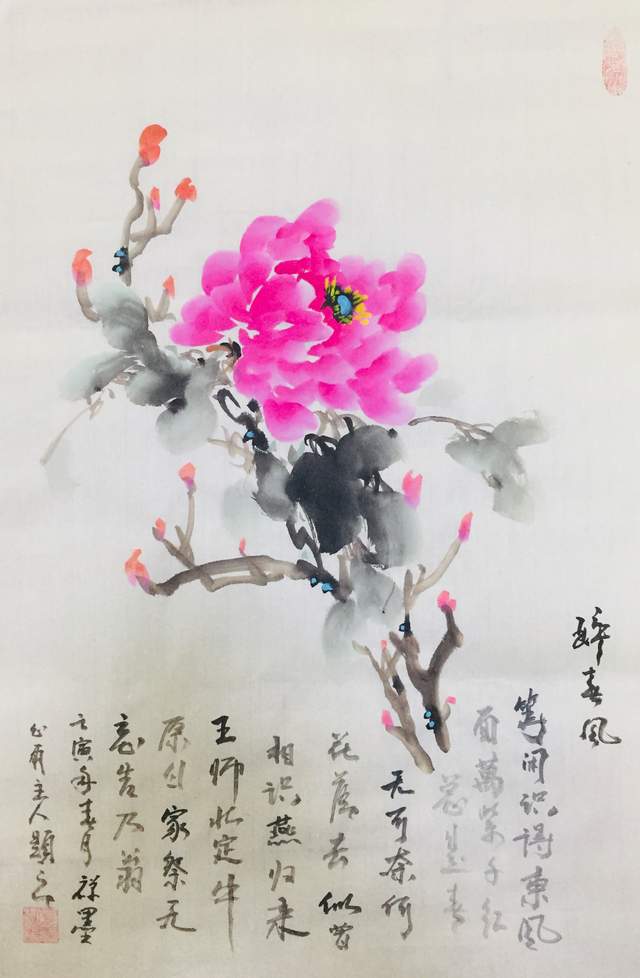 醉春风
等闲识得東风
面萬紫千红
总是春
无可奈何
花落去似曾
相识燕归来
王师北定中
原日家祭无
忘告乃翁
壬寅年春月祥墨
主人題